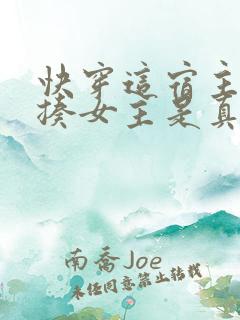 快穿這宿主
揍女主是真
南喬Joe
未经同意禁止转载